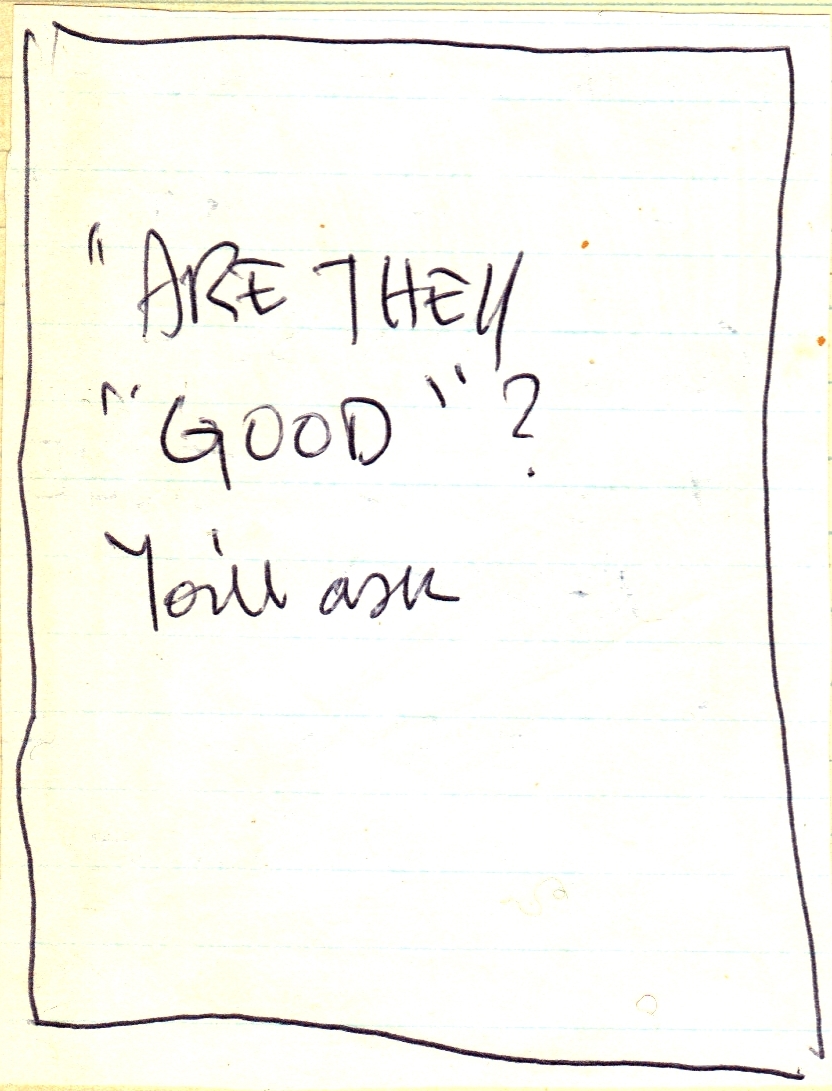 "ARE THEY
"GOOD"?
You'll ask